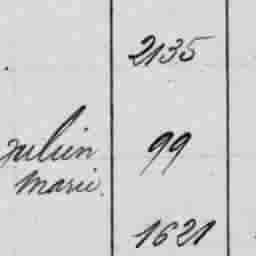 2135
Julien 99
Marie.
1621